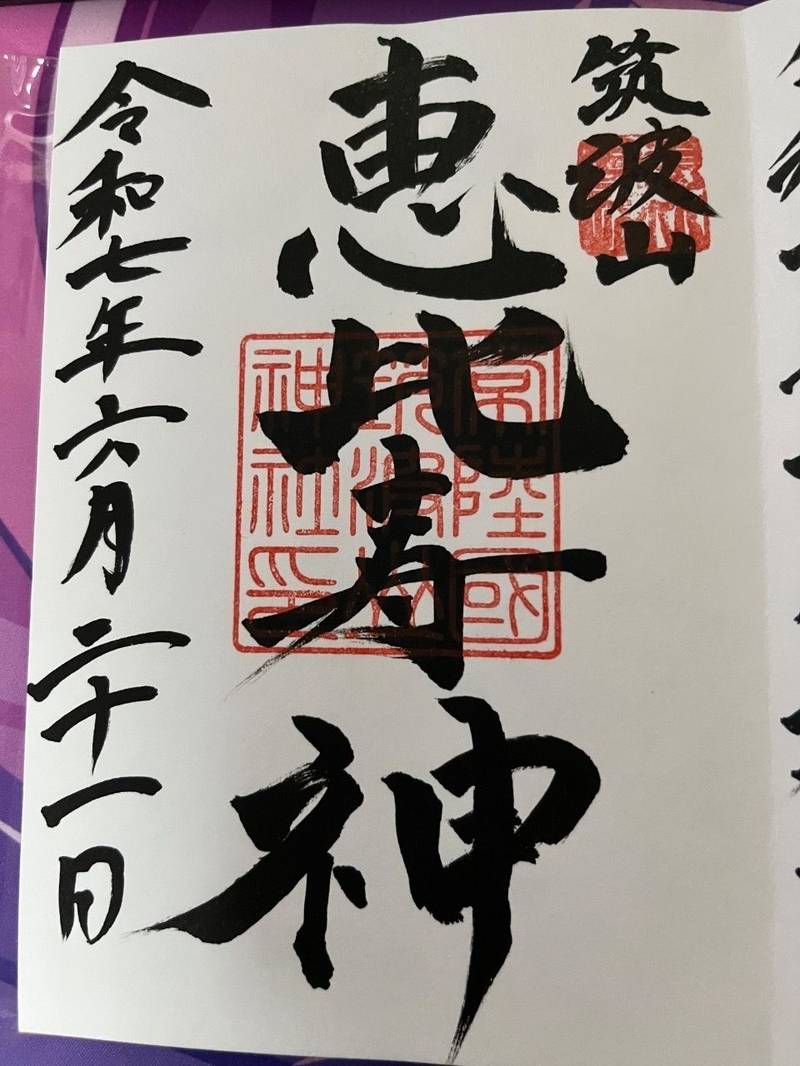 筑波山
恵比寿神
常陸國
筑波山
神社印
令和七年六月二十一日